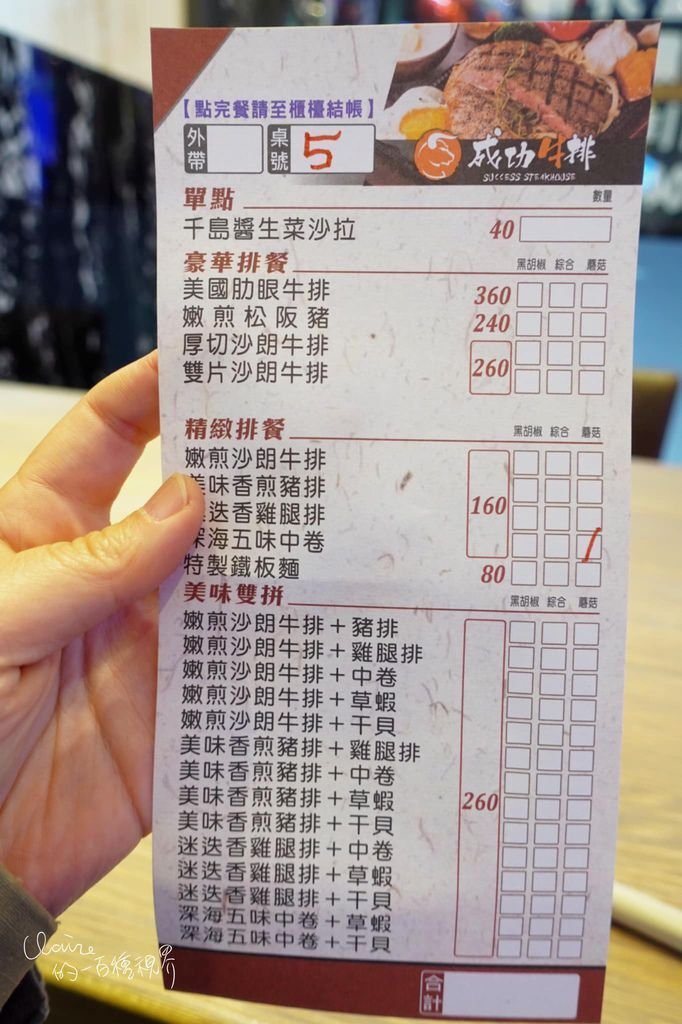 【點完餐請至櫃檯結帳】
外帶 桌號 5
成功牛排
SUCCESS STEAKHOUSE
單點 數量
千島醬生菜沙拉 40
豪華排餐 黑胡椒 綜合 蘑菇
美國肋眼牛排 360
嫩煎松阪豬 240
厚切沙朗牛排
雙片沙朗牛排 260
精緻排餐 黑胡椒 綜合 蘑菇
嫩煎沙朗牛排
美味香煎豬排
迭香雞腿排 160
深海五味中卷
特製鐵板麵 80
美味雙拼 黑胡椒 綜合 蘑菇
嫩煎沙朗牛排+豬排
嫩煎沙朗牛排+雞腿排
嫩煎沙朗牛排+中卷
嫩煎沙朗牛排+草蝦
嫩煎沙朗牛排+干貝
美味香煎豬排+雞腿排
美味香煎豬排+中卷
美味香煎豬排+草蝦 260
美味香煎豬排+干貝
迷迭香雞腿排+中卷
迷迭香雞腿排+草蝦
迷迭香雞腿排+干貝
深海五味中卷+草蝦
深海五味中卷+干貝
合計
Claire
的一百種視界